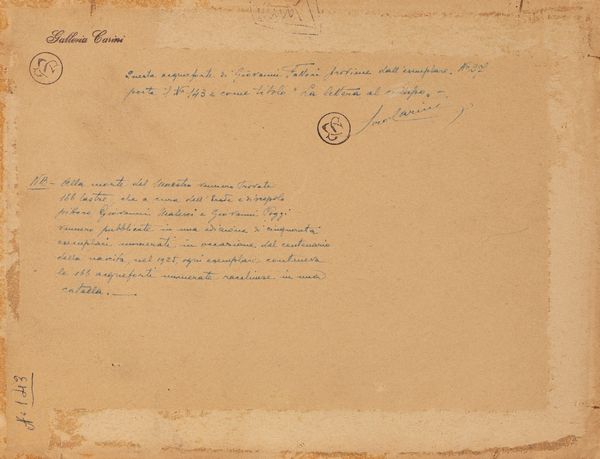 Galleria Carini
Questa acquaforte di Giovanni Fattori proviene dall'esemplare N°
porta il N° 143 e come titolo "La lettera al
NB - Alla morte del Maestro vennero trovate
166 lastre, che a cura dell'Erede e discepolo
pittore Giovanni Malesci e Giovanni Poggi
vennero pubblicate in una edizione di cinquanta
esemplari numerati in occasione del centenario
della nascita, nel 1925, ogni esemplare conteneva
le 166 acqueforti numerate racchiuse in una
cartella.
N° 143